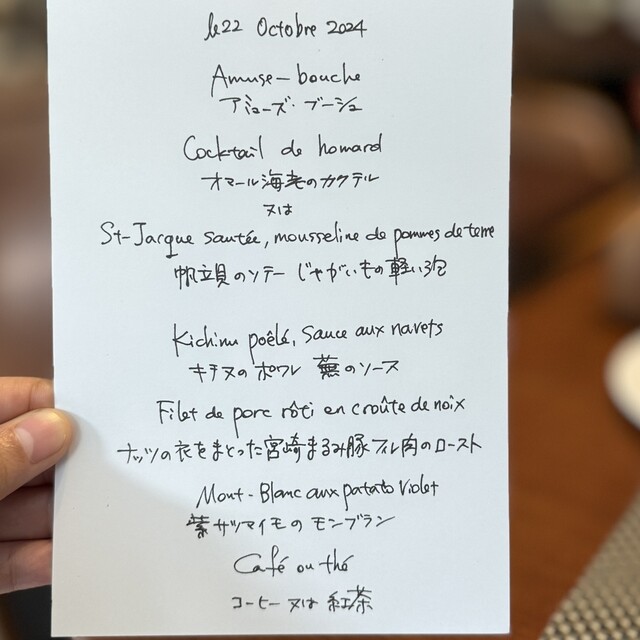 le 22 Octobre 2024
Amuse-bouche
アミューズ・ブーシュ
Cocktail de homard
オマール海老のカクテル
又は
St-Jacque sautée, mousseline de pommes de terre
帆立貝のソテー じゃがいもの軽い泡
Kichinu poêlé, Sauce aux navets
キチヌのポワレ 蕪のソース
Filet de porc rôti en croûte de noix
ナッツの衣をまとった宮崎まるみ豚フィレ肉のロースト
Mont-Blanc aux patato violet
紫サツマイモのモンブラン
Café ou thé
コーヒー又は紅茶